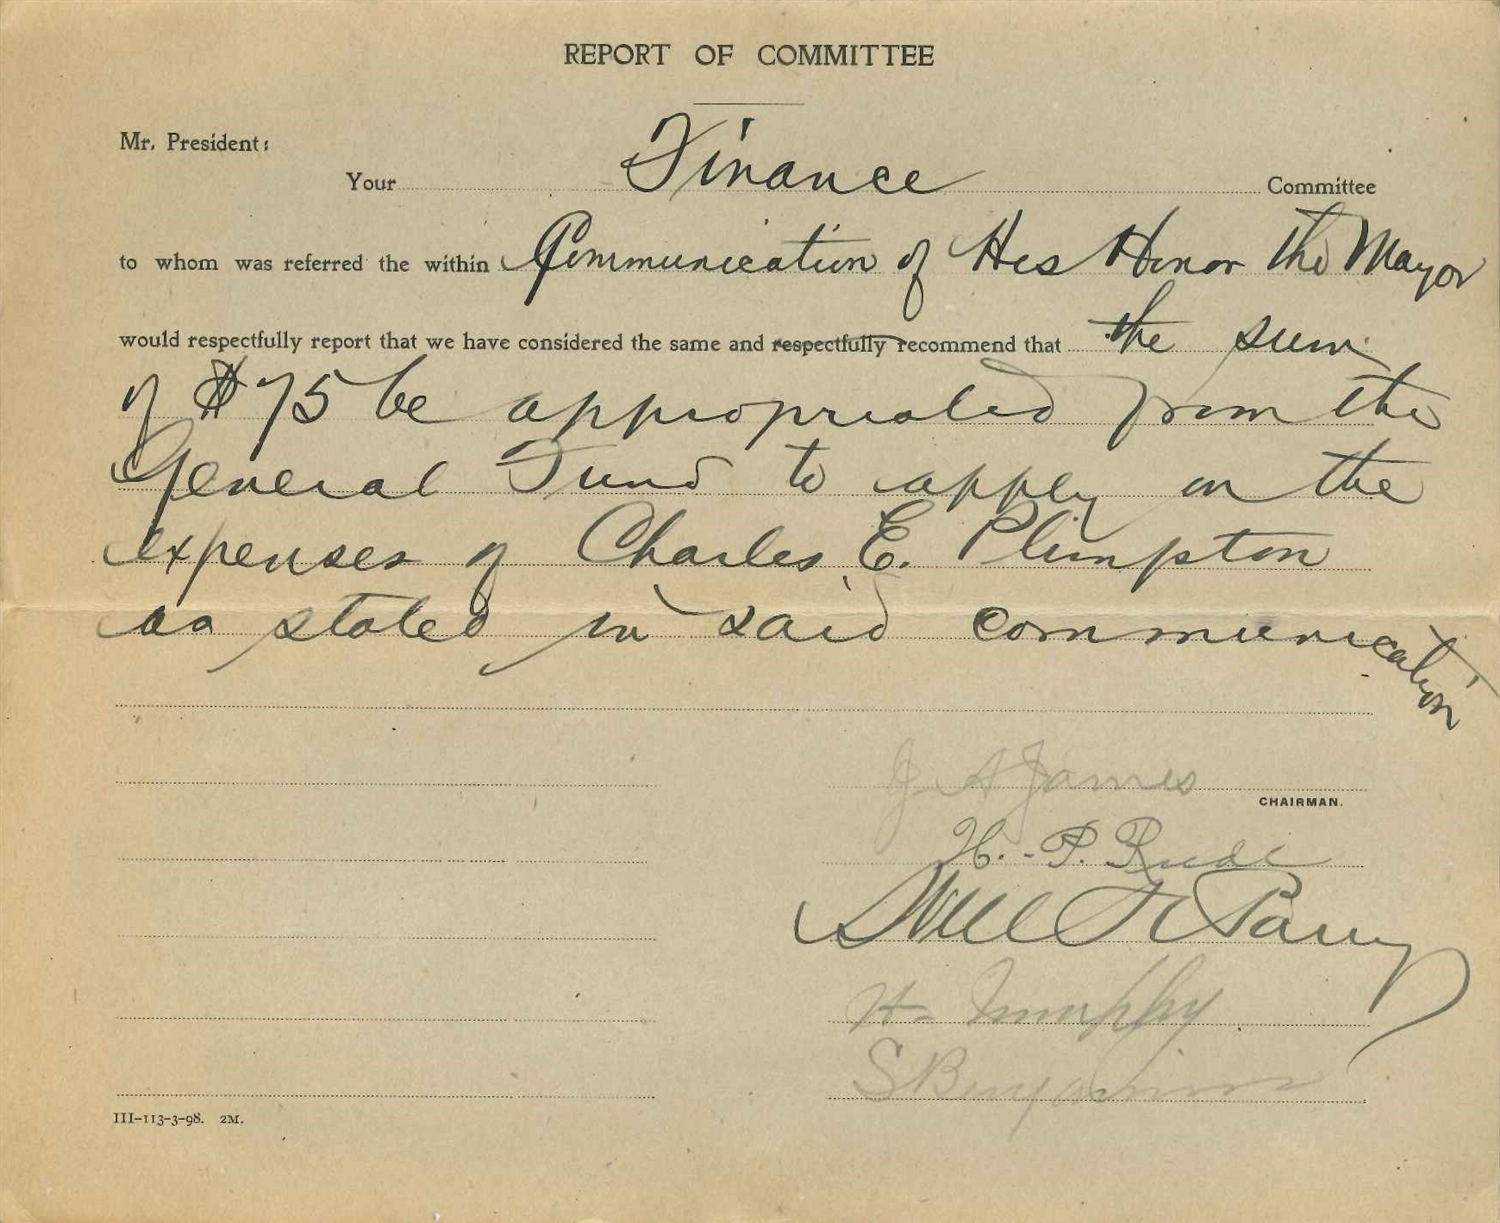 REPORT OF COMMITTEE
Mr. President:
Your Finance Committee
to whom was referred the within Communication of His Honor the Mayor
would respectfully report that we have considered the same and respectfully recommend that the sum
of $75 be appropriated from the
General Fund to apply on the
expenses of Charles E. Plimpton
as stated in said communication
J A James
CHAIRMAN.
H. P. Rude
Will H Parry
H- Murphy
S Benjamin
III-113-3-98. 2M.